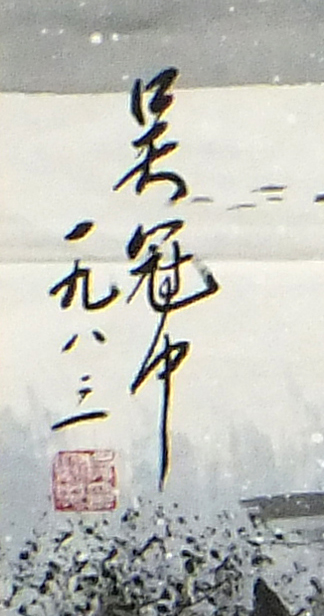 吴冠中
一九八三